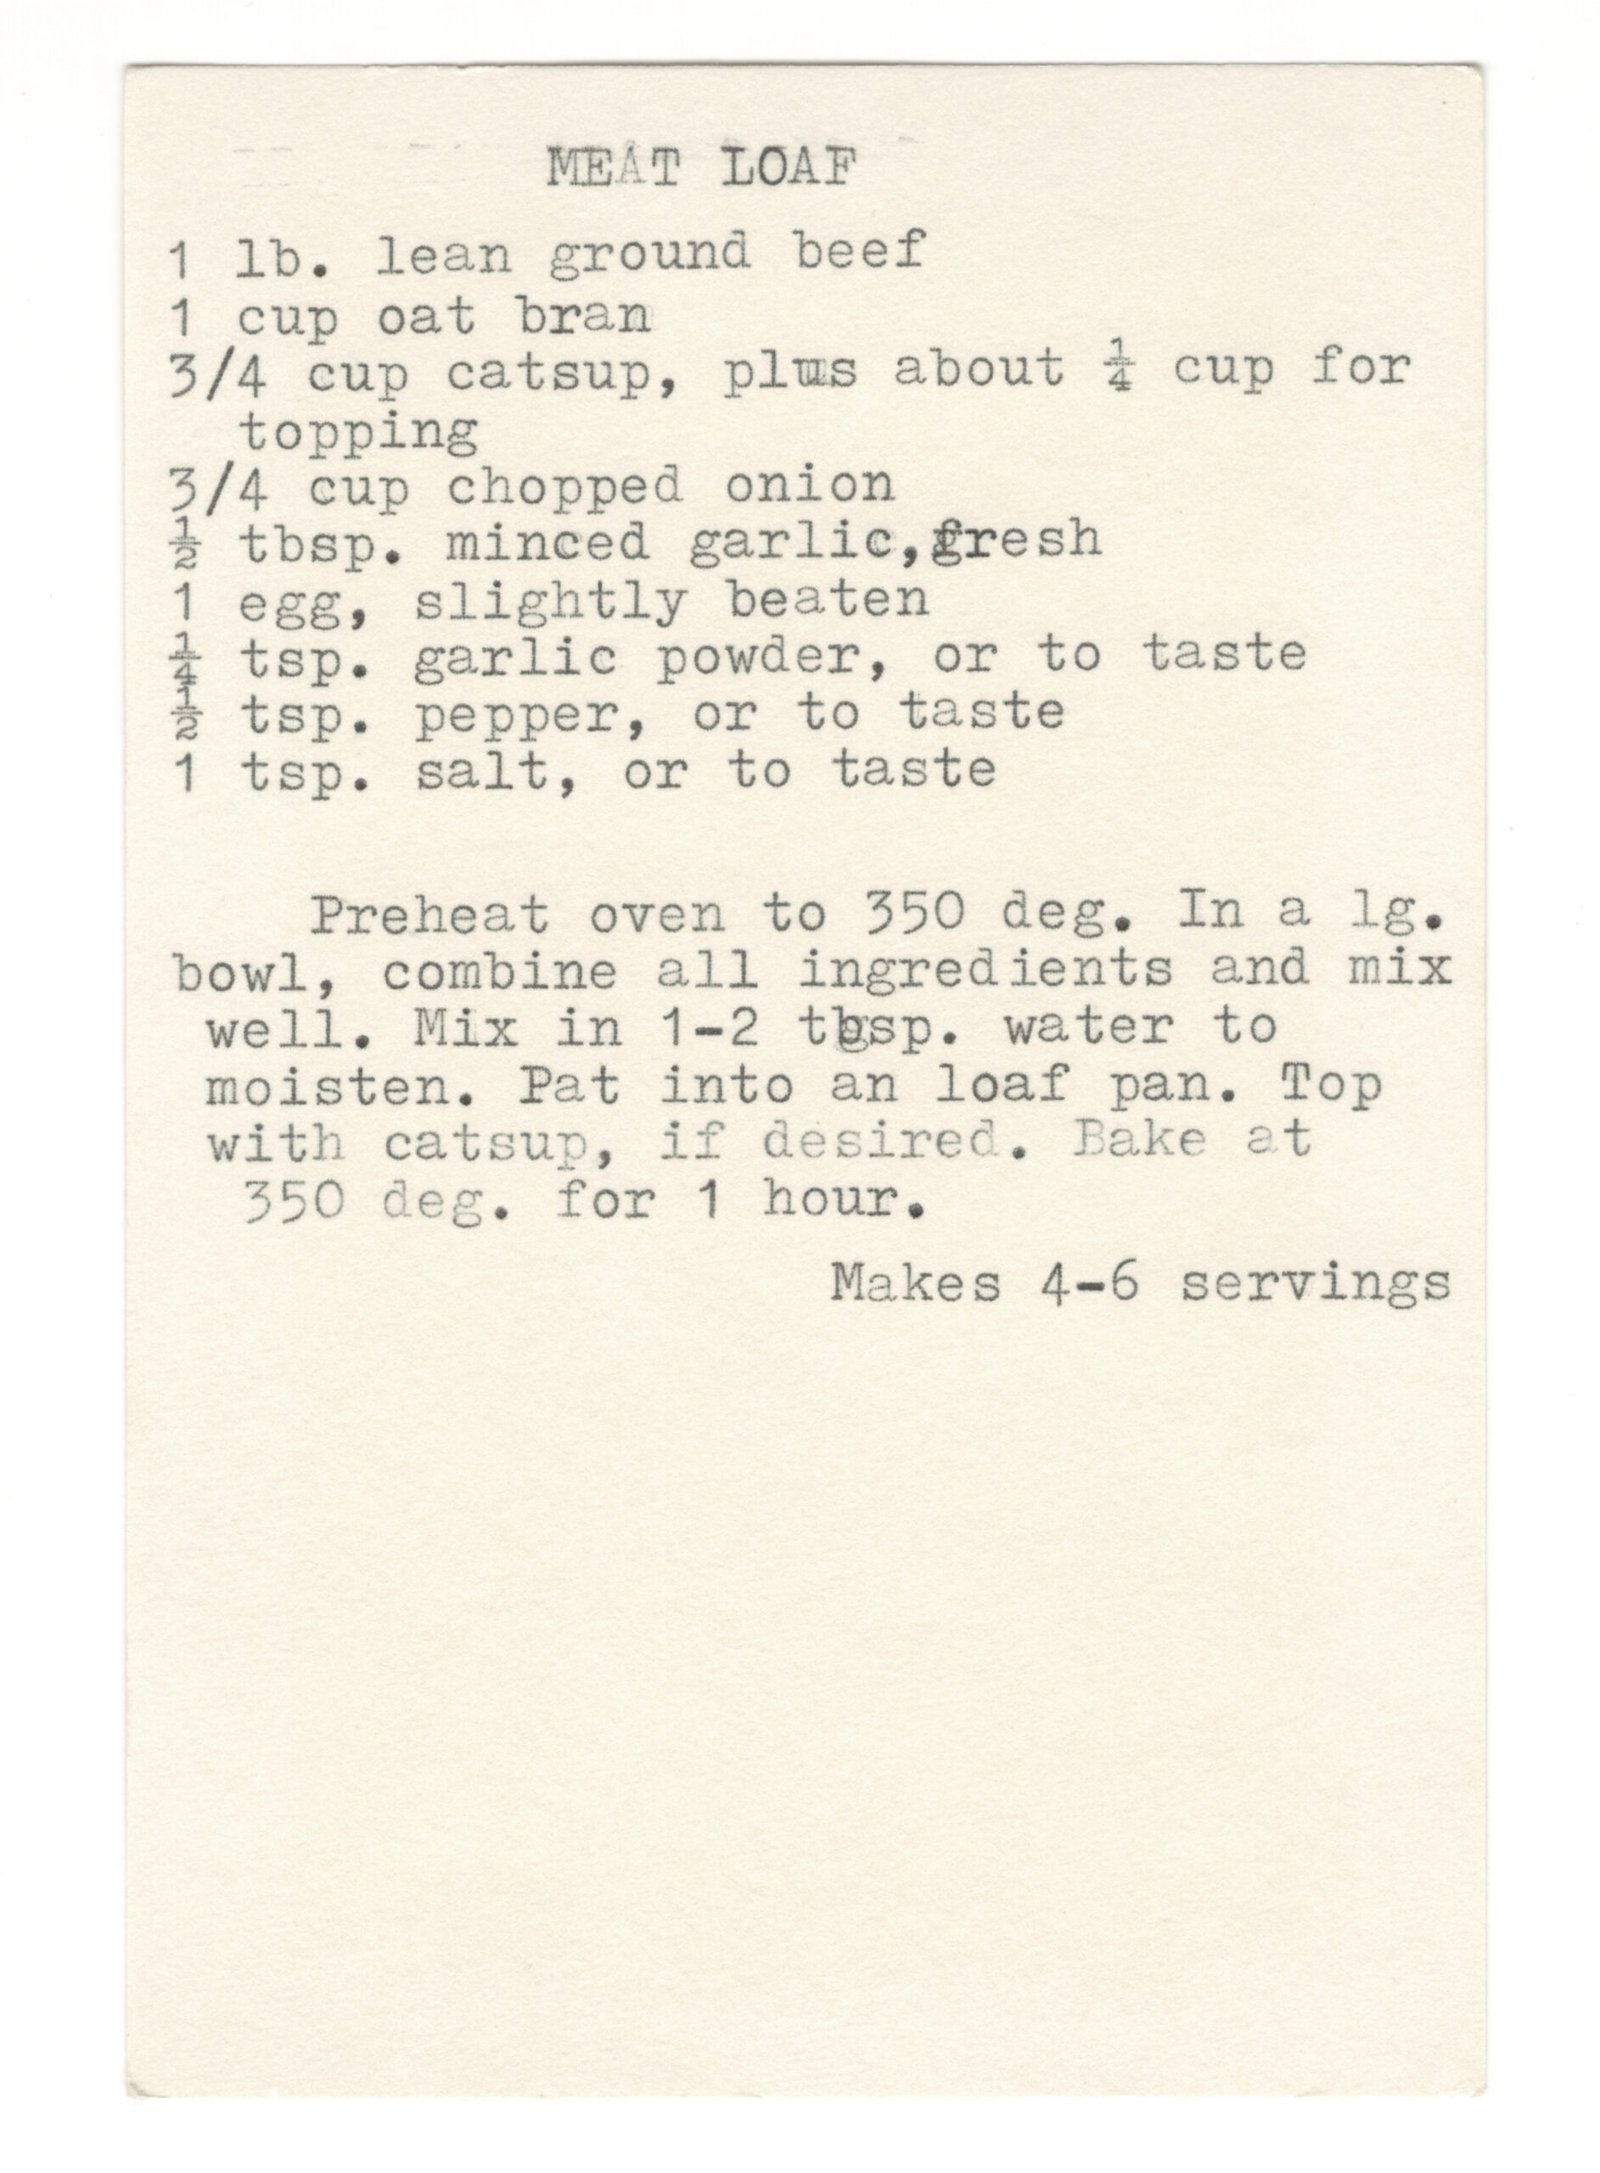 MEAT LOAF
1 lb. lean ground beef
1 cup oat bran
3/4 cup catsup, plus about ¼ cup for
topping
3/4 cup chopped onion
½ tbsp. minced garlic,fresh
1 egg, slightly beaten
¼ tsp. garlic powder, or to taste
½ tsp. pepper, or to taste
1 tsp. salt, or to taste
Preheat oven to 350 deg. In a lg.
bowl, combine all ingredients and mix
well. Mix in 1-2 tbsp. water to
moisten. Pat into an loaf pan. Top
with catsup, if desired. Bake at
350 deg. for 1 hour.
Makes 4-6 servings